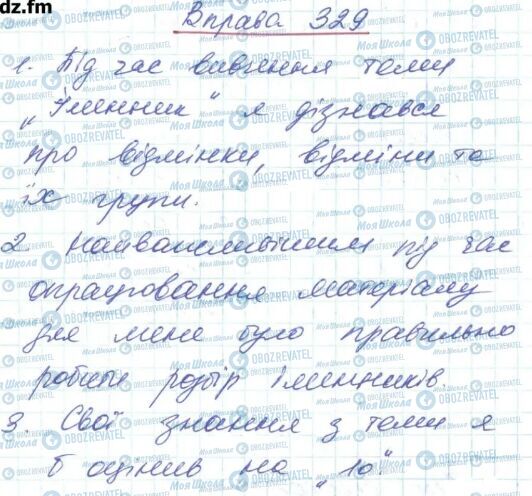 dz.fm
Вправа 329
1. Під час вивчення теми
„Іменник“ я дізнався
про відмінки, відміни та
їх групи.
2. Найважливішим під час
опрацювання матеріалу
для мене було правильно
робити розбір іменників.
3. Свої знання з теми я
б оцінив на „10“.